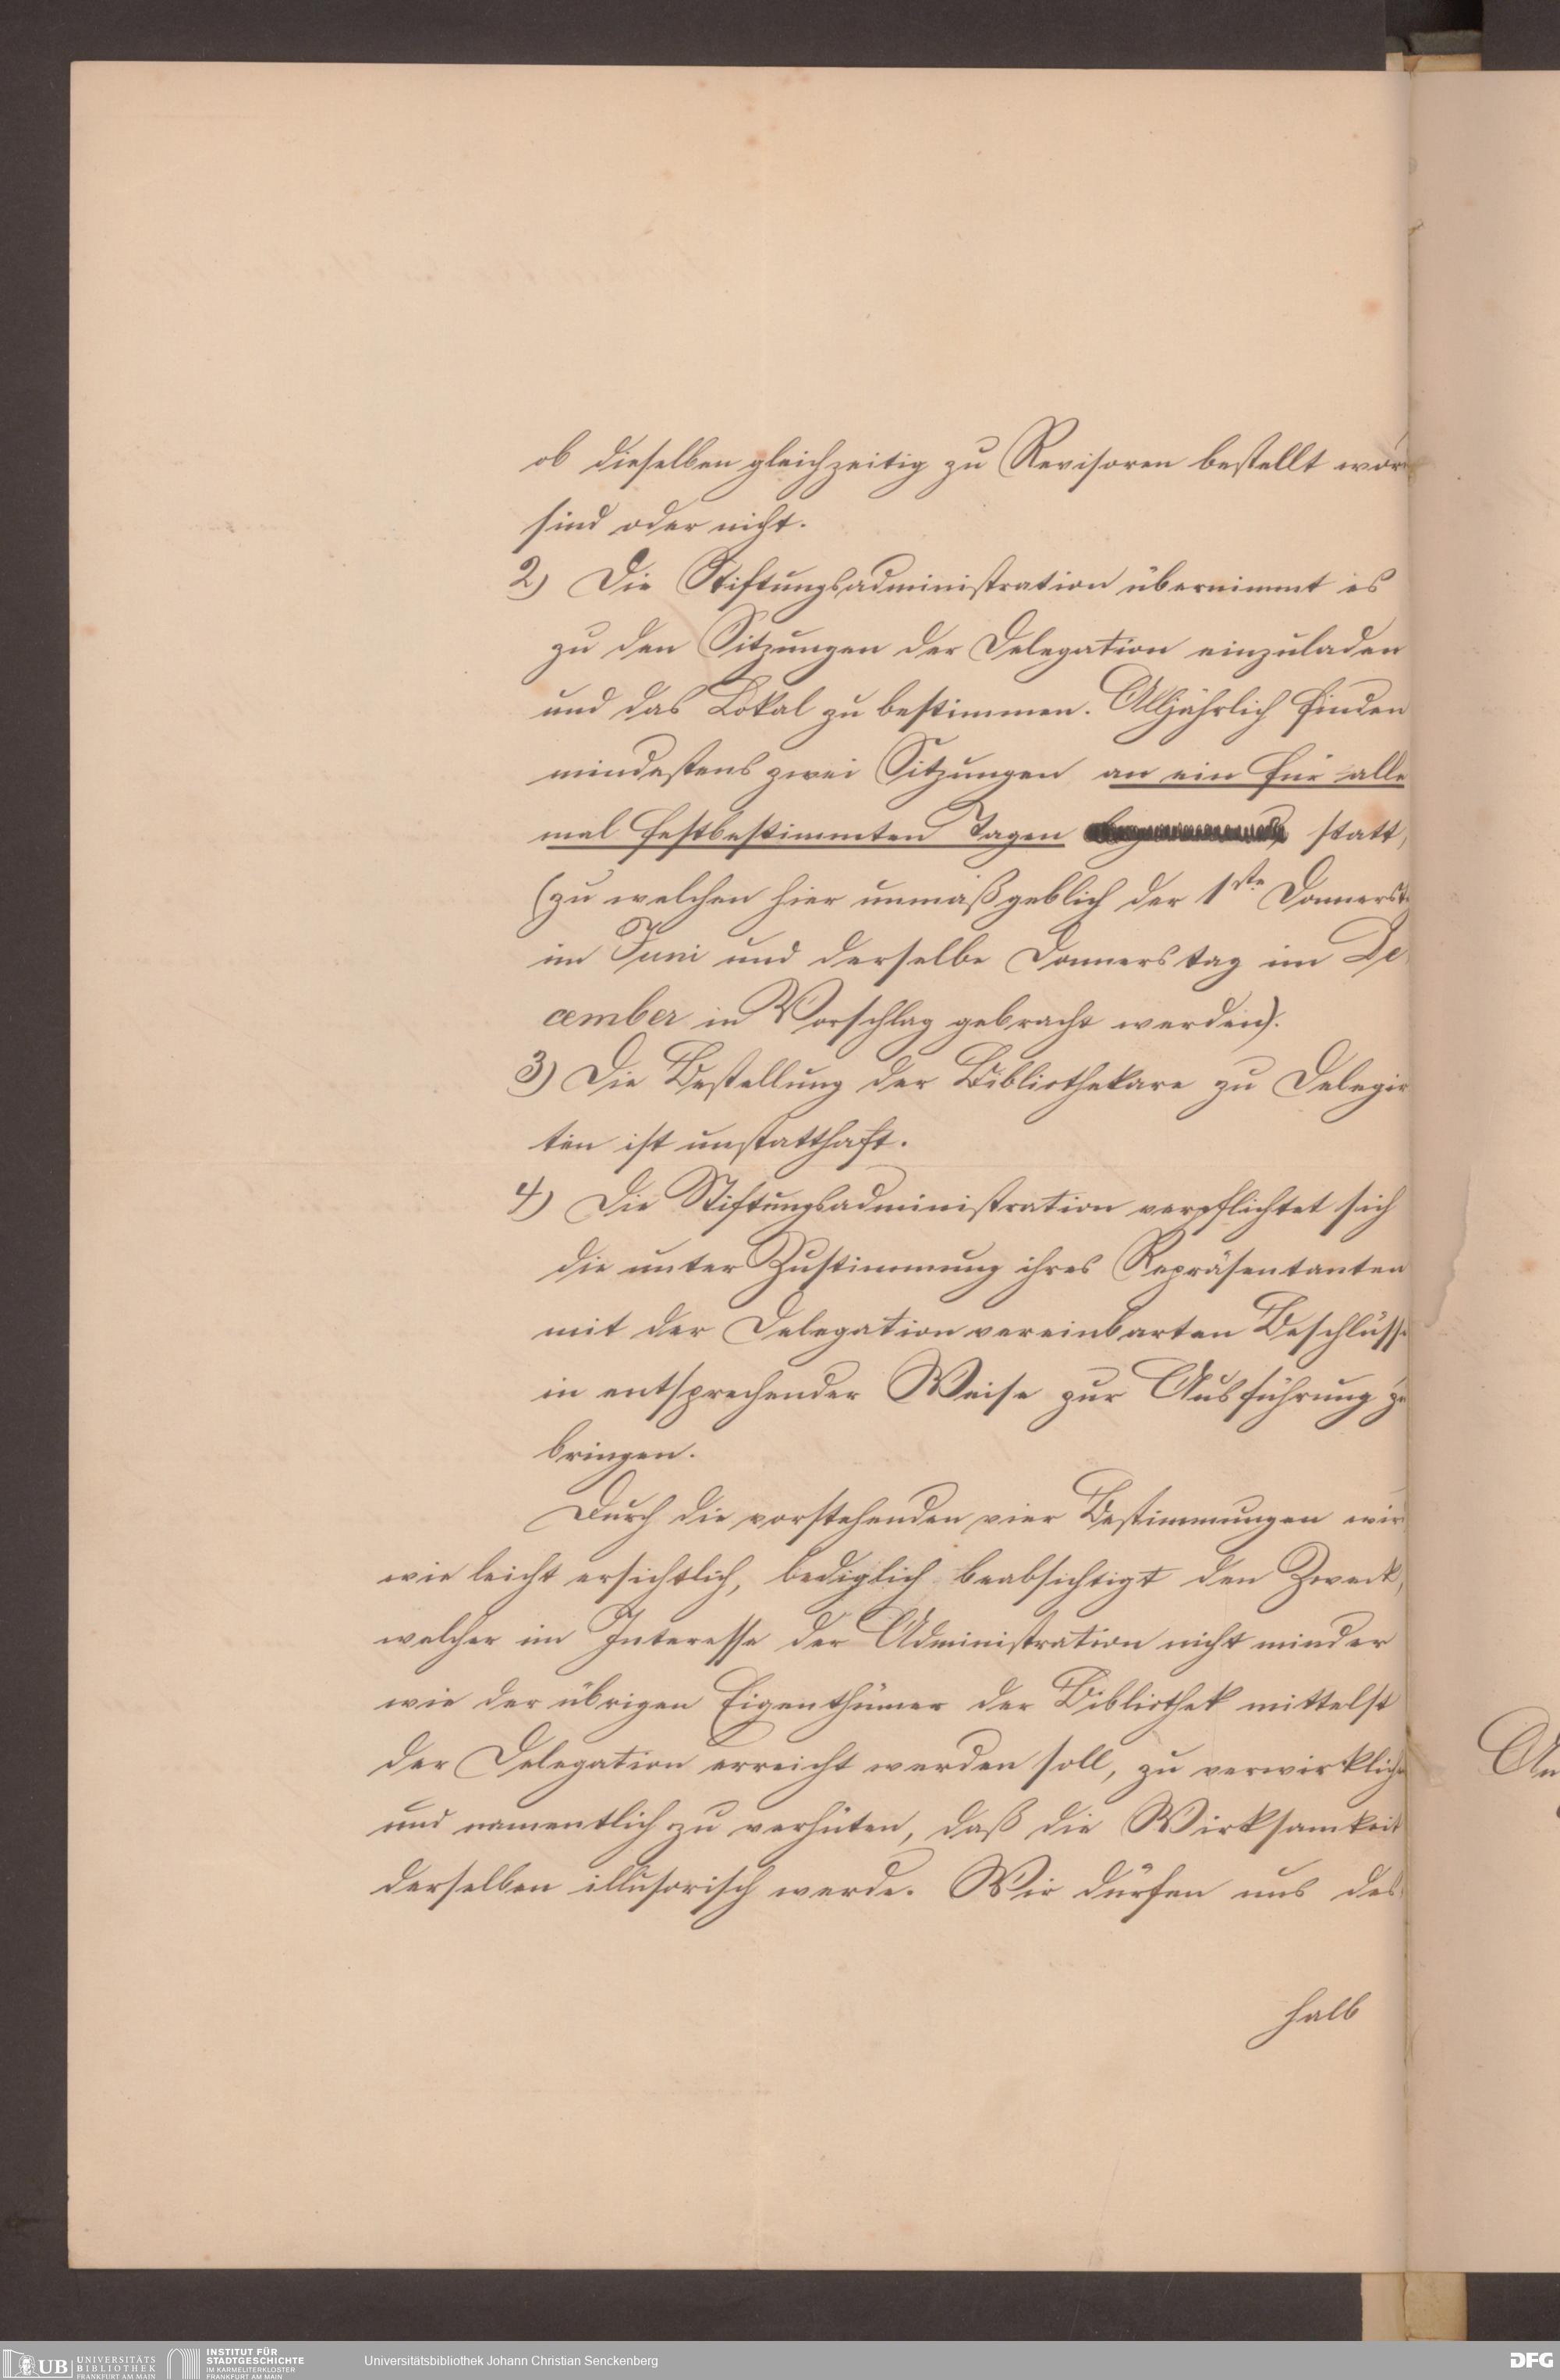 ob dieselben gleichzeitig zu Revisoren bestellt wor
sind oder nicht.
2) Die Stiftungsadministration übernimmt es
zu den Sitzungen der Delegation einzuladen
und das Lokal zu bestimmen. Alljährlich finden
mindestens zwei Sitzungen an ein für alle
mal festbestimmten Tagen statt,
(zu welchen hier unmaßgeblich der 1ste Donnerst
im Juni und derselbe Donnerstag im De
cember in Vorschlag gebracht werden).
3) Die Bestellung der Bibliothekare zu Delegir
ten ist unstatthaft.
4) Die Stiftungsadministration verpflichtet sich
die unter Zustimmung ihres Repräsentanten
mit der Delegation vereinbarten Beschlüsse
in entsprechender Weise zur Ausführung zu
bringen.
Durch die vorstehenden vier Bestimmungen wir
wie leicht ersichtlich, lediglich beabsichtigt den Zweck,
welcher im Interesse der Administration nicht minder
wie der übrigen Eigenthümer der Bibliothek mittelst
der Delegation erreicht werden soll, zu verwirkliche
und namentlich zu verhüten, daß die Wirksamkeit
derselben illusorisch werde. Wir dürfen uns des
halb
An
UB UNIVERSITÄTS
BIBLIOTHEK
FRANKFURT AM MAIN
INSTITUT FÜR
STADTGESCHICHTE
IM KARMELITERKLOSTER
FRANKFURT AM MAIN
Universitätsbibliothek Johann Christian Senckenberg
DFG